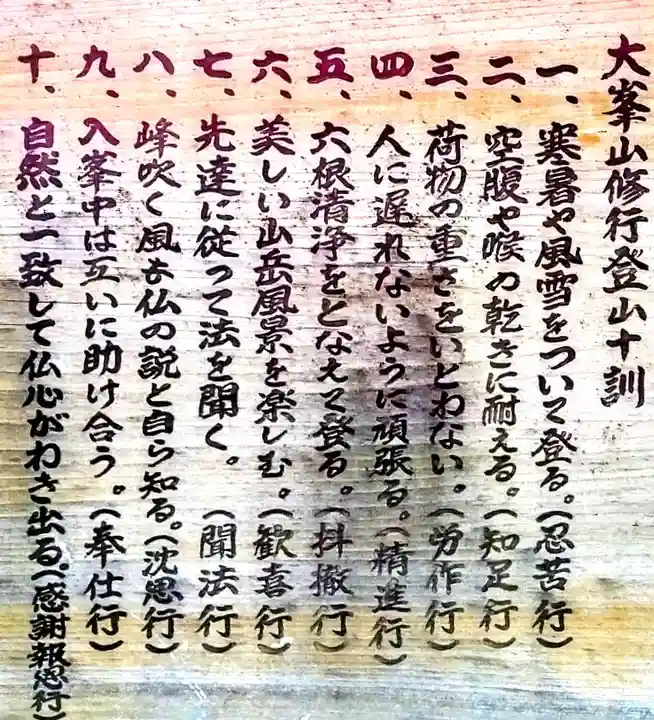 大峯山修行登山十訓
一、寒暑や風雪をついて登る。(忍苦行)
二、空腹や喉の乾きに耐える。(知足行)
三、荷物の重さをいとわない。(労作行)
四、人に遅れないように頑張る。(精進行)
五、六根清浄をとなえて登る。(抖擻行)
六、美しい山岳風景を楽しむ。(歓喜行)
七、先達に従って法を聞く。(聞法行)
八、峰吹く風も仏の説と自ら知る。(沈思行)
九、入峯中は互いに助け合う。(奉仕行)
十、自然と一致して仏心がわき出る。(感謝報恩行)